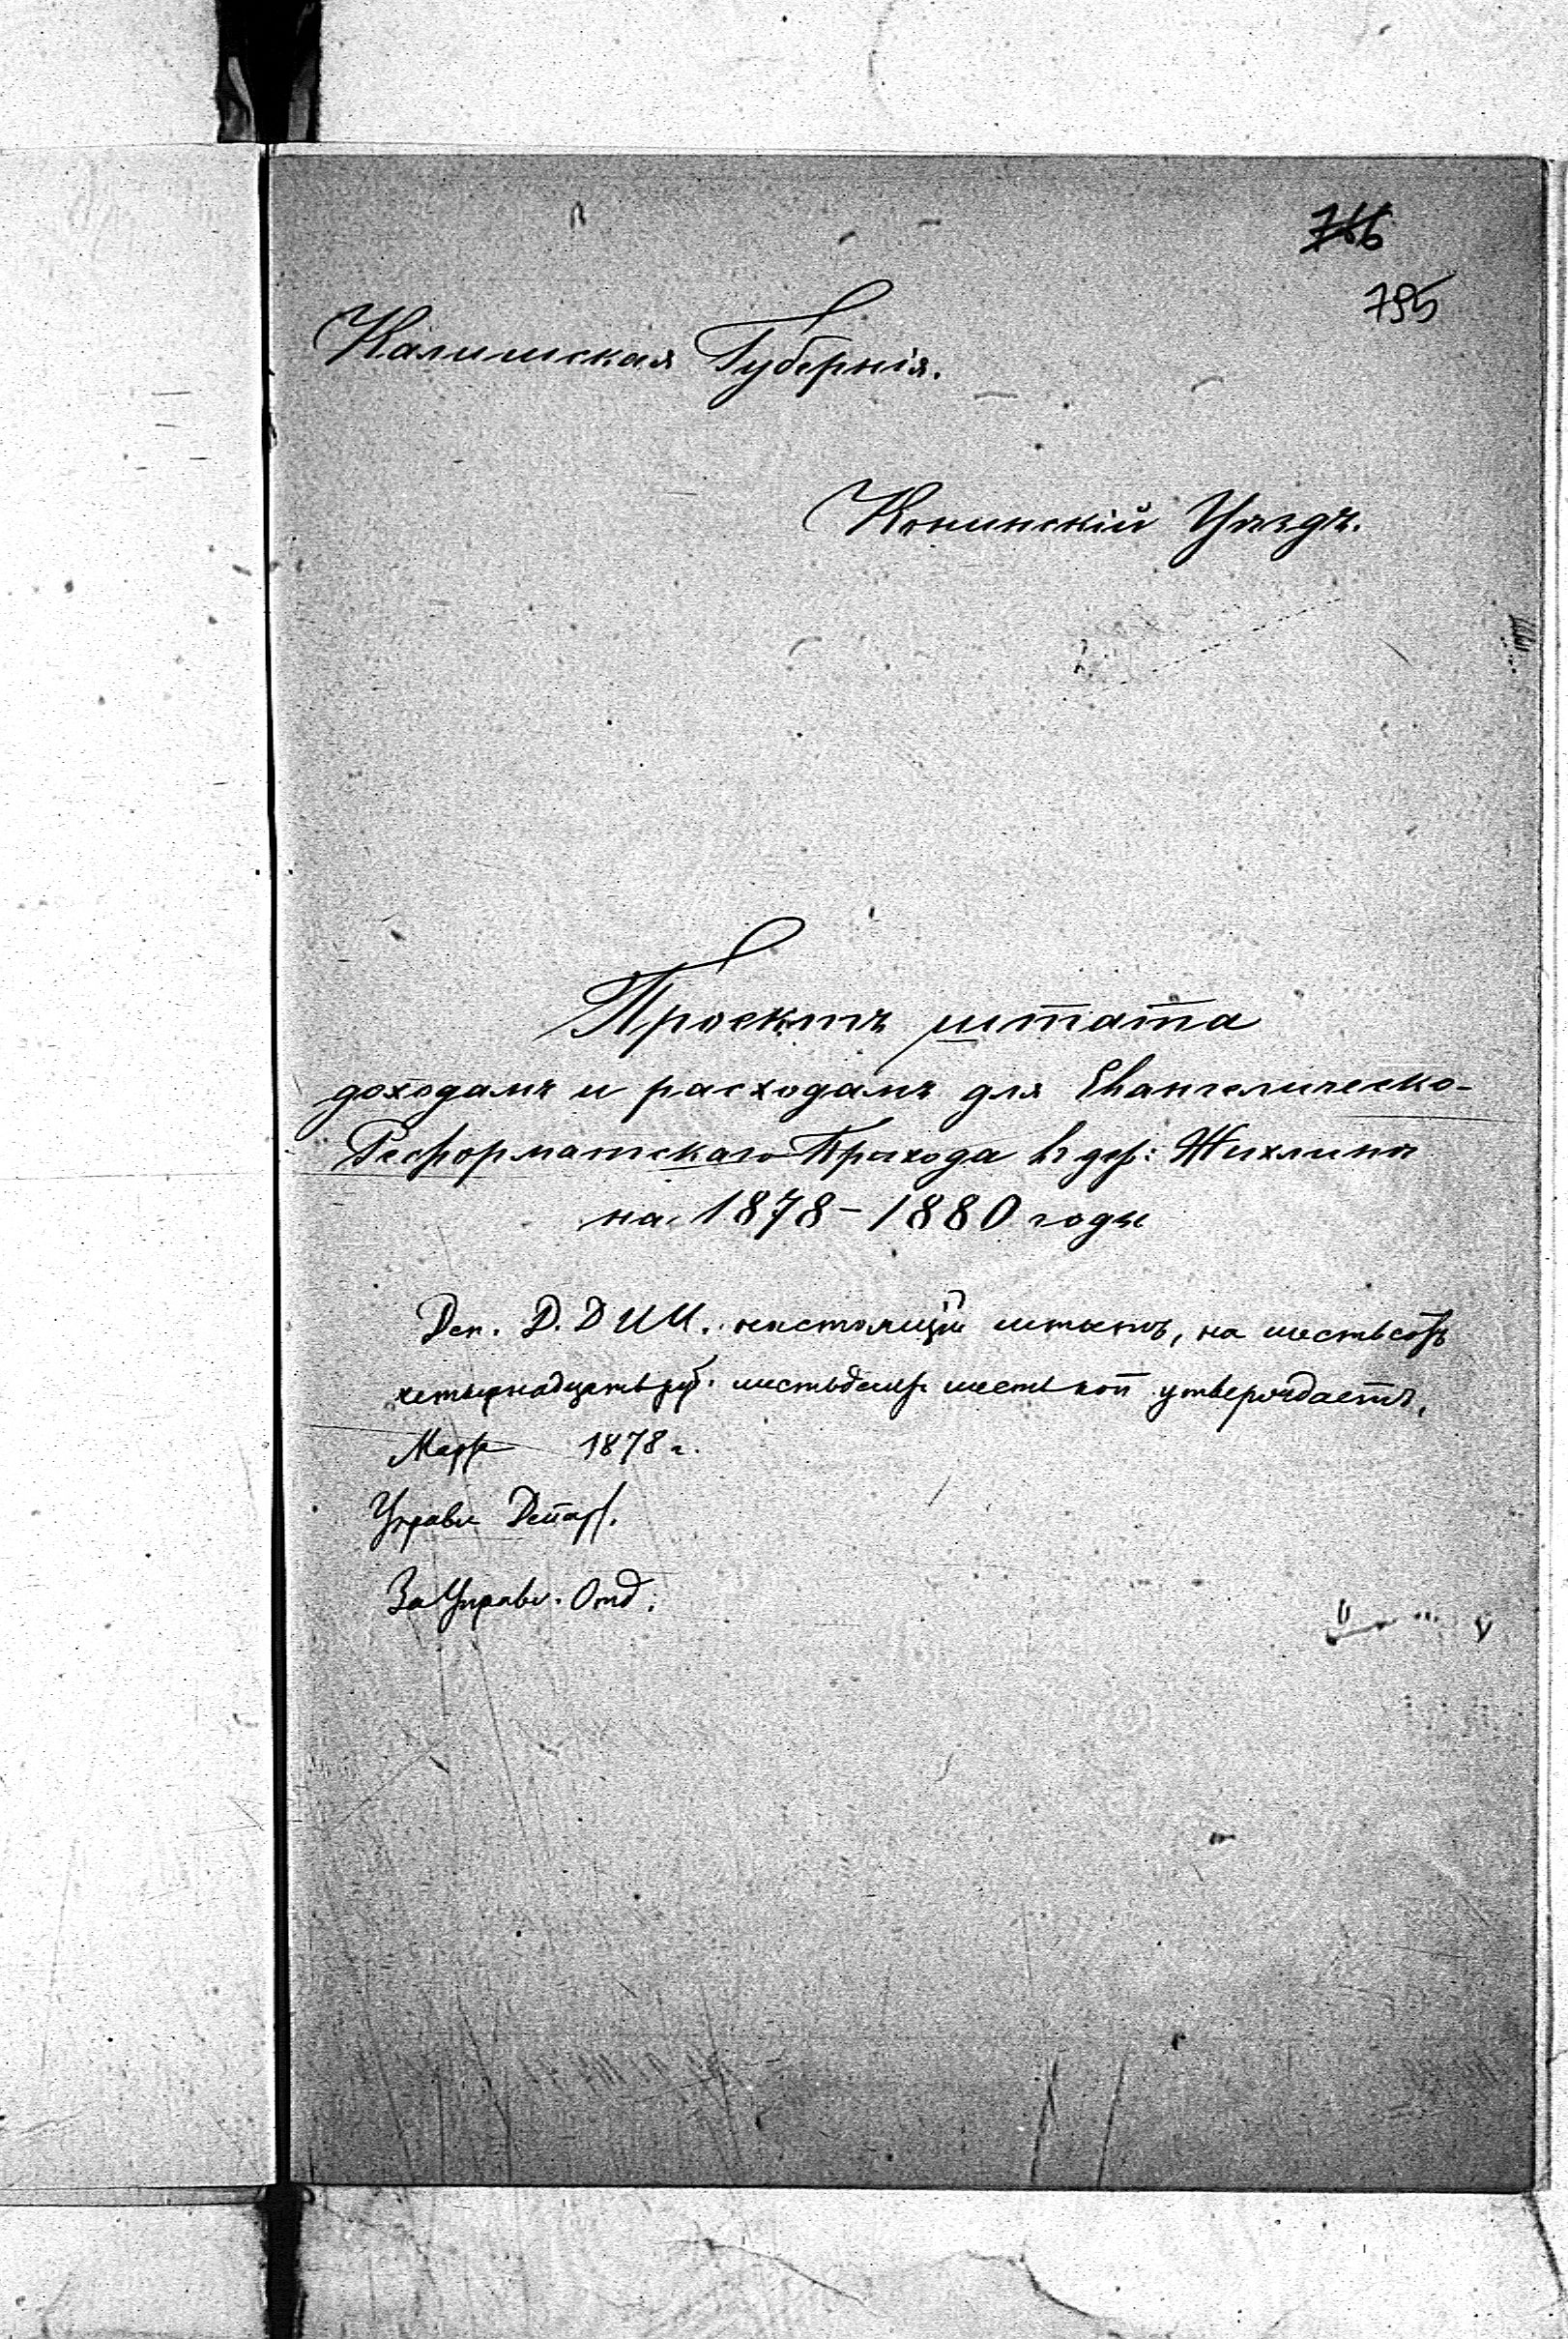 795
Калишская Губернія.
Конинскій Уѣздъ.
Проектъ штата
доходамъ и расходамъ для Евангелическо-
Реформатскаго Прихода въ дер: Жихлинѣ
на 1878-1880 годы
Деп. Д. Д И И. настоящій штатъ, на шестьсотъ
четырнадцать руб. шестьдеся. шесть коп утверждаетъ,
Марта 1878 г.
Управл Департ.
За Управл. Отд.